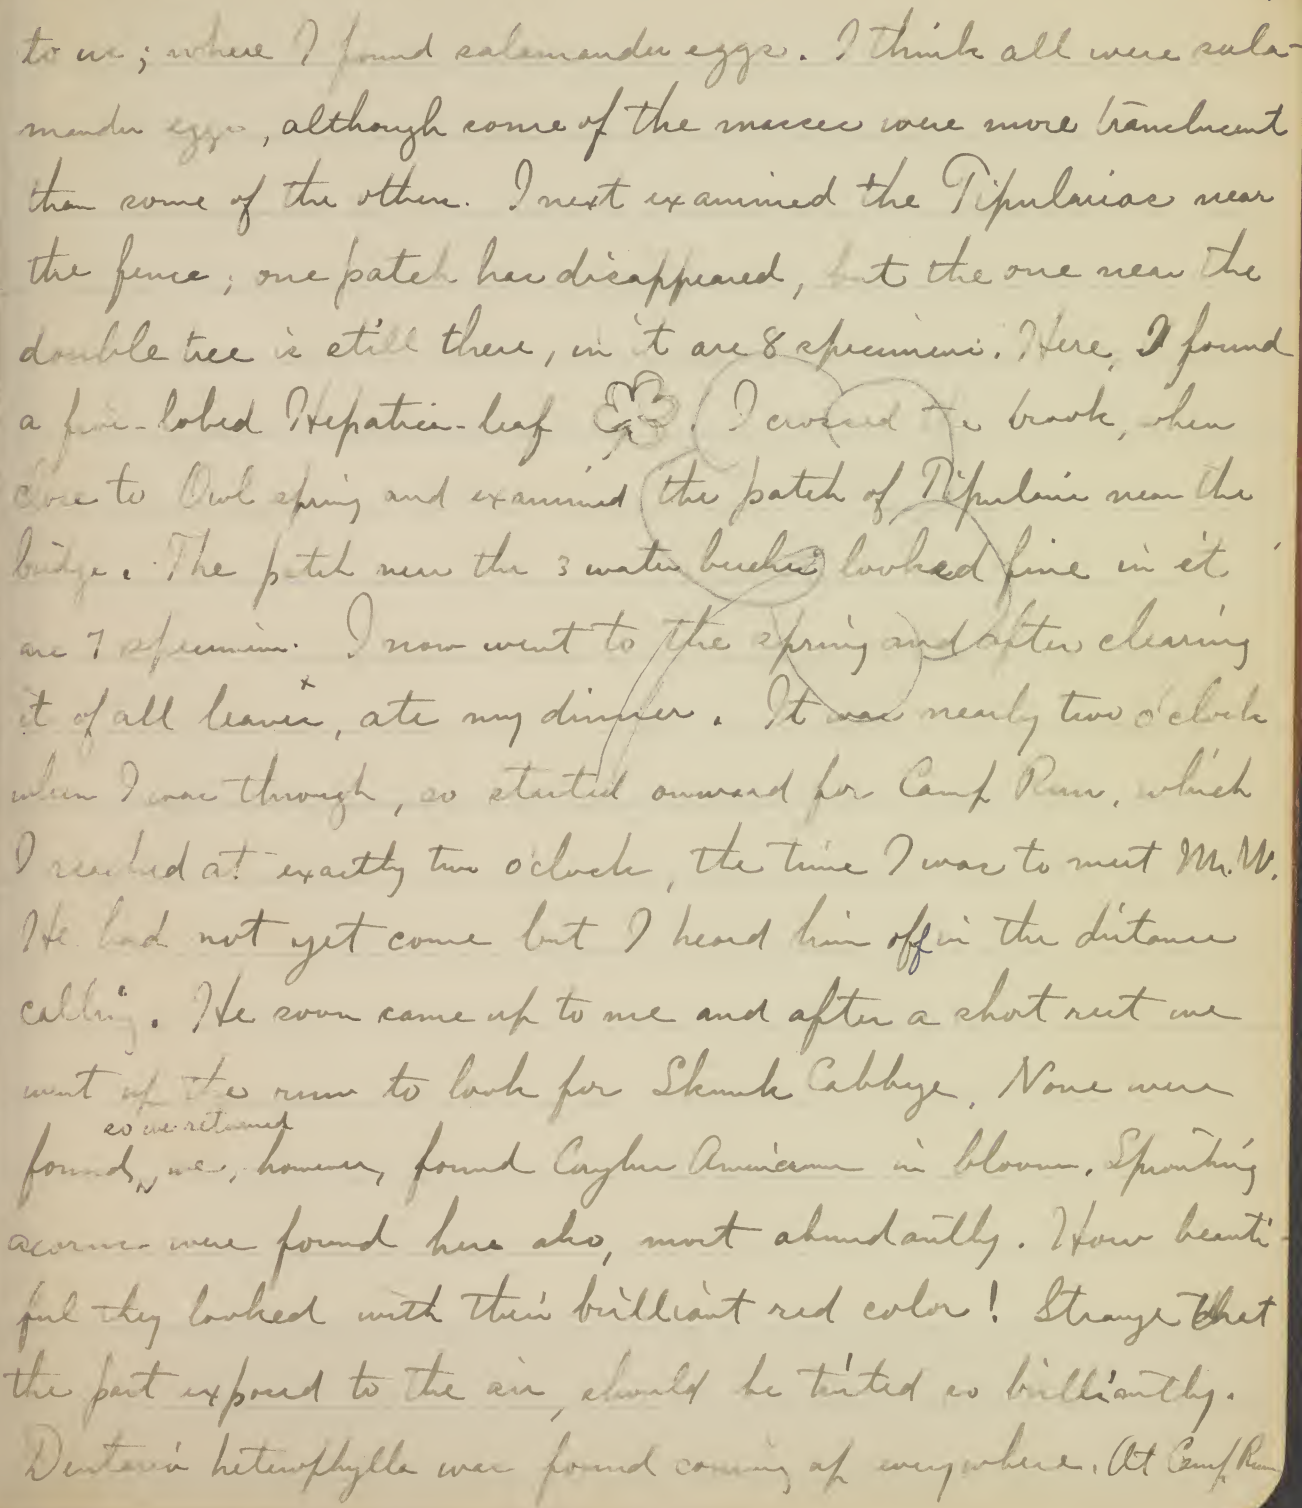 to us; where I found salamander eggs. I think all were sala-
mander eggs, although some of the masses were more translucent
than some of the others. I next examined the Tipularias near
the fence; one patch has disappeared, but the one near the
double tree is still there, in it are 8 specimens. Here, I found
a five-lobed Hepatica-leaf. I crossed the brook, when
close to Owl spring and examined the patch of Tipularia near the
bridge. The patch near the 3 water beeches looked fine in it
are 7 specimens. I now went to the spring and after clearing
it of all leaves x, ate my dinner. It was nearly two o'clock
when I was through, so started onward for Camp Run, which
I reached at exactly two o'clock, the time I was to meet Mr. W.
He had not yet come but I heard him off in the distance
calling. He soon came up to me and after a short rest we
went up the run to look for Skunk Cabbage. None were
so we returned
found, we, however, found Corylus Americana in bloom. Sprouting
acorns were found here also, most abundantly. How beauti-
ful they looked with their brilliant red color! Strange that
the part exposed to the air, should be tinted so brilliantly.
Dentaria heterophylla was found coming up everywhere. At Camp Run